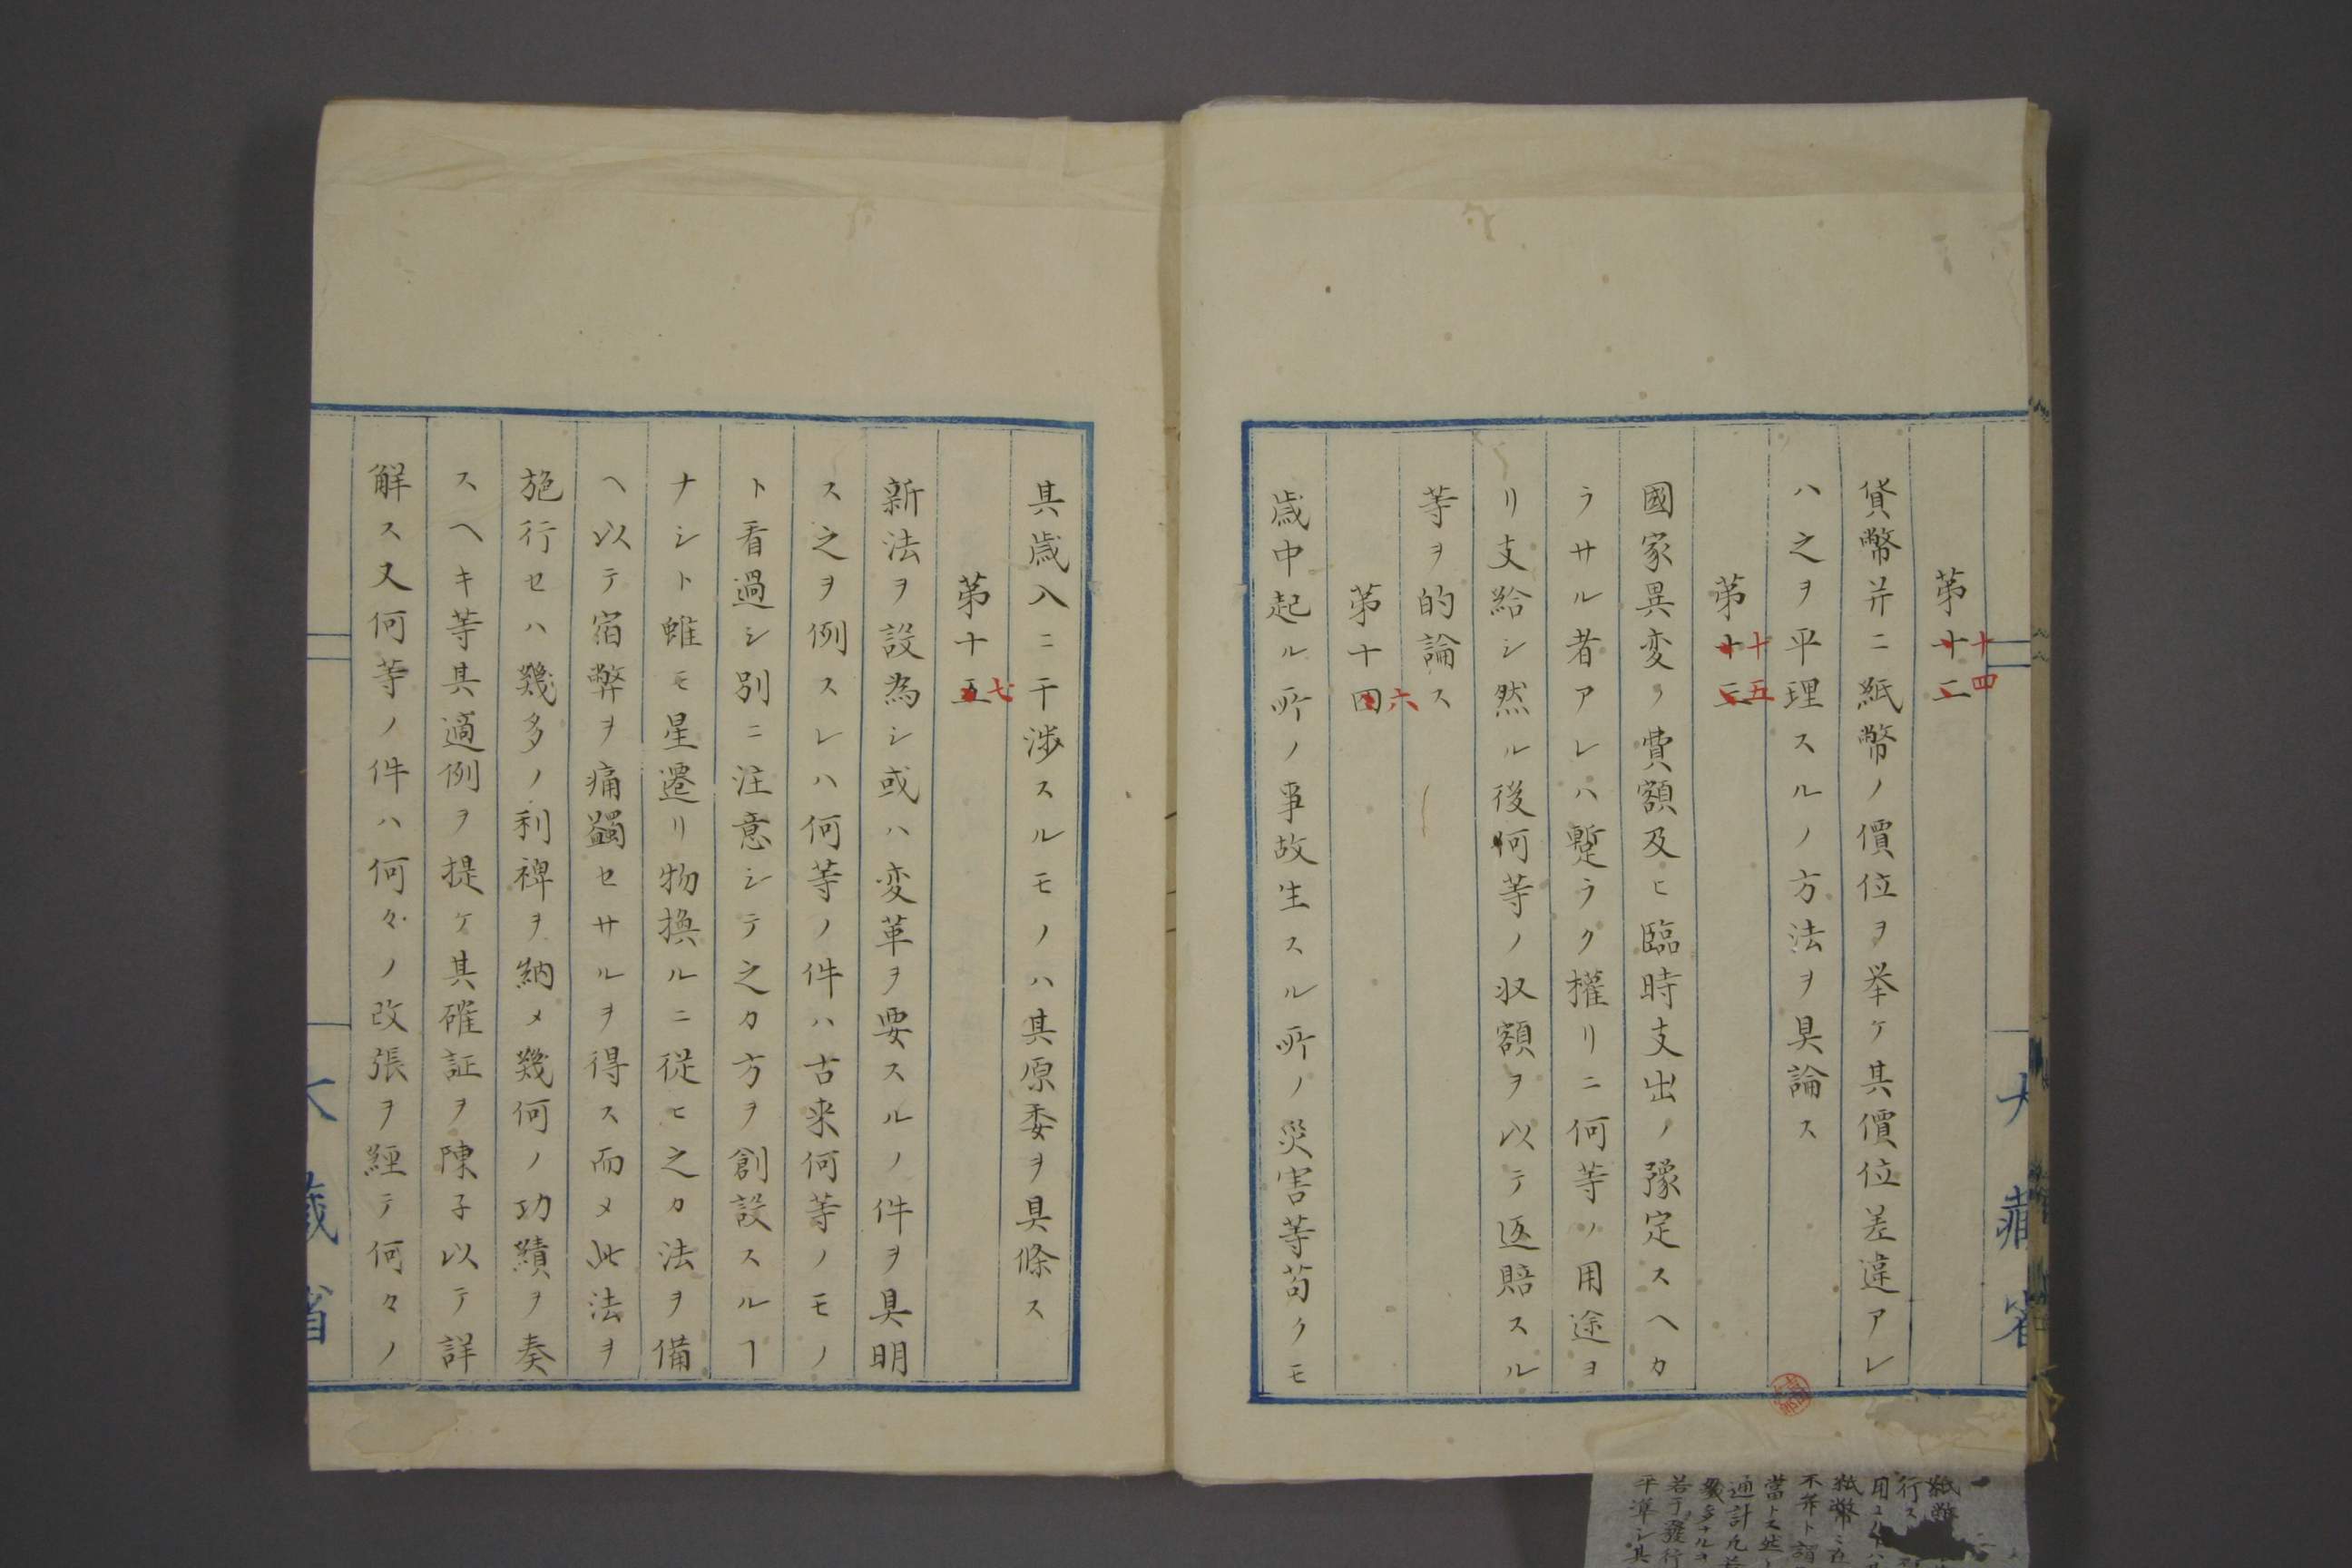 第十二
十四
貨幣并ニ紙幣ノ價位ヲ举ケ其價位差違アレ
ハ之ヲ平理スルノ方法ヲ具論ス
第十三
十五
國家異変ノ費額及ヒ臨時支出ノ豫定スヘカ
ラサル者アレハ暫ラク權リニ何等ノ用途ヨ
リ支給シ然ル後何等ノ収額ヲ以テ返賠スル
等ヲ的論ス
第十四
六
歳中起ル所ノ事故生スル所ノ災害等苟クモ
其歳入ニ干渉スルモノハ其原委ヲ具條ス
第十五
七
新法ヲ設為シ或ハ変革ヲ要スルノ件ヲ具明
ス之ヲ例スレハ何等ノ件ハ古来何等ノモノ
ト看過シ別ニ注意シテ之カ方ヲ創設スルヿ
ナシト雖モ星遷リ物換ルニ従ヒ之カ法ヲ備
ヘ以テ宿弊ヲ痛蠲セサルヲ得ス而メ此法ヲ
施行セハ幾多ノ利裨ヲ納メ幾何ノ功績ヲ奏
スヘキ等其適例ヲ提ケ其確証ヲ陳子以テ詳
解ス又何等ノ件ハ何々ノ改張ヲ經テ何々ノ
大藏省
大藏省
紙幣
行ス
用
紙幣
不
當トス然
通計凡
幾多ナルヲ
若干發行
平準シ其